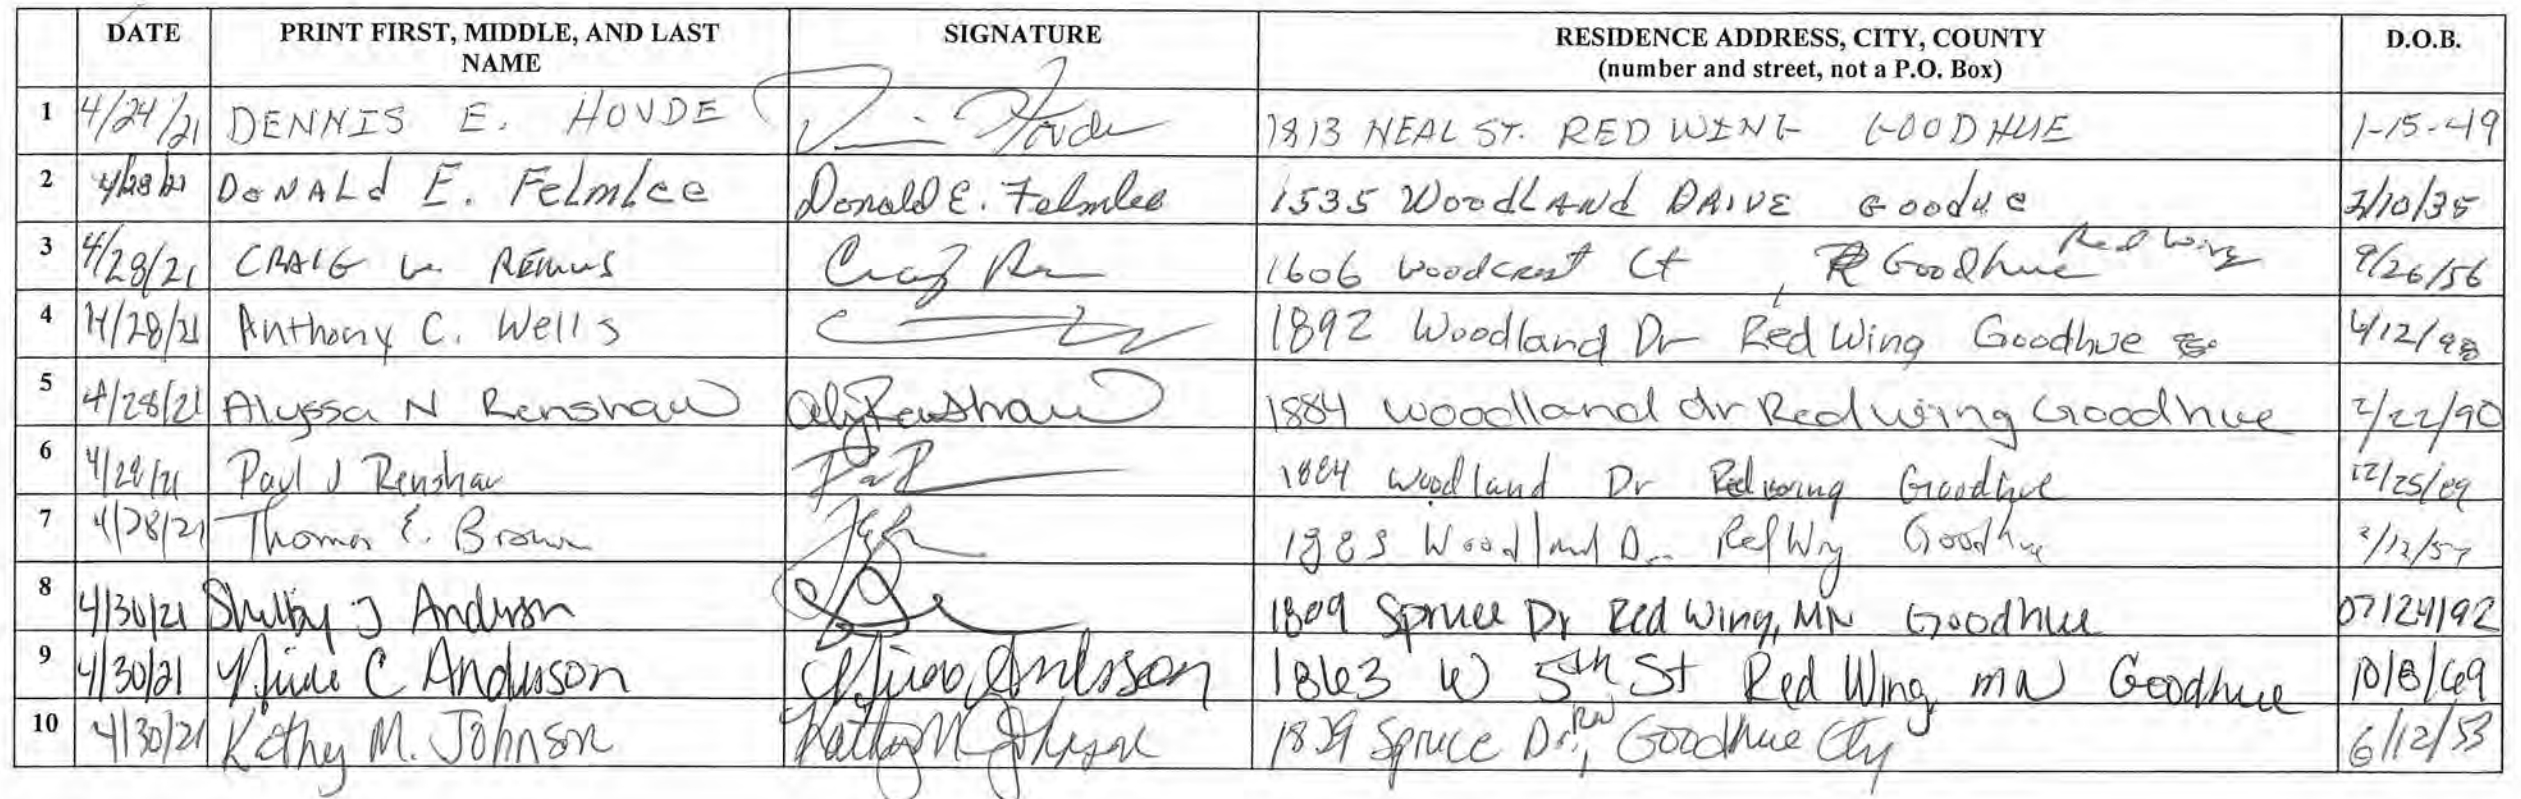 DATE PRINT FIRST, MIDDLE, AND LAST NAME SIGNATURE RESIDENCE ADDRESS, CITY, COUNTY (number and street, not a P.O. Box) D.O.B.
1 4/24/21 DENNIS E. HOVDE Hovde 1813 NEAL ST. RED WING GOODHUE 1-15-49
2 4/28/21 DONALd E. FeLmLee Donald E. Felmlee 1535 WoodLANd DRIVE Goodue 2/10/35
3 4/28/21 CRAIG W. REMUS Craig 1606 Woodcrest Ct, Goodhue Red Wing 9/26/56
4 4/28/21 Anthony C. Wells 1892 Woodland Dr Red Wing Goodhue
5 4/28/21 Alyssa N Renshaw Aly Renshaw 1884 woodland dr Red wing Goodhue 2/22/90
6 4/28/21 Paul J Renshaw 1884 Woodland Dr Red wing Goodhue 12/25/89
7 4/28/21 Thomas E. Brown 1883 Woodland Dr Red Wing Goodhue
8 4/30/21 Shelby J Anderson 1809 Spruce Dr Red Wing, MN Goodhue 07/24/92
9 4/30/21 C Andersson Andersson 1863 W 5th St Red Wing MN Goodhue 10/8/69
10 4/30/21 Kathy M. Johnson Kathy M Johnson 1839 Spruce Dr., RW Goodhue Cty 6/12/53